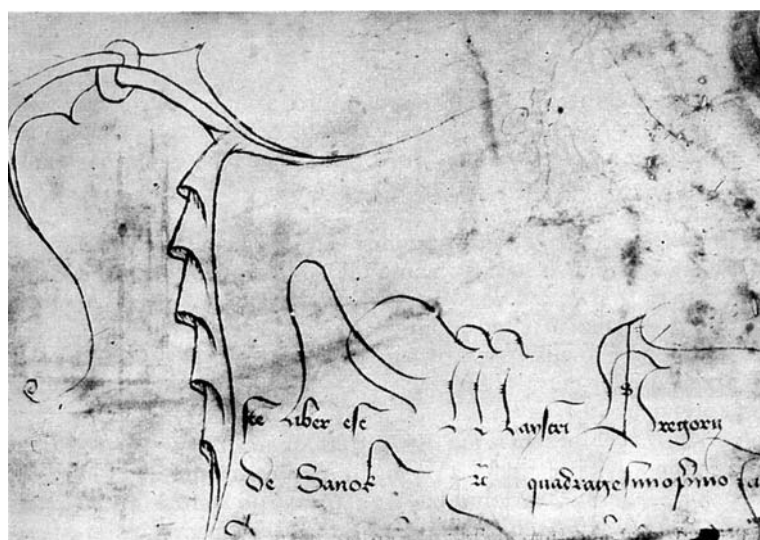 Iste liber est Maystri Gregorii
de Sanok quadragesimoprimo